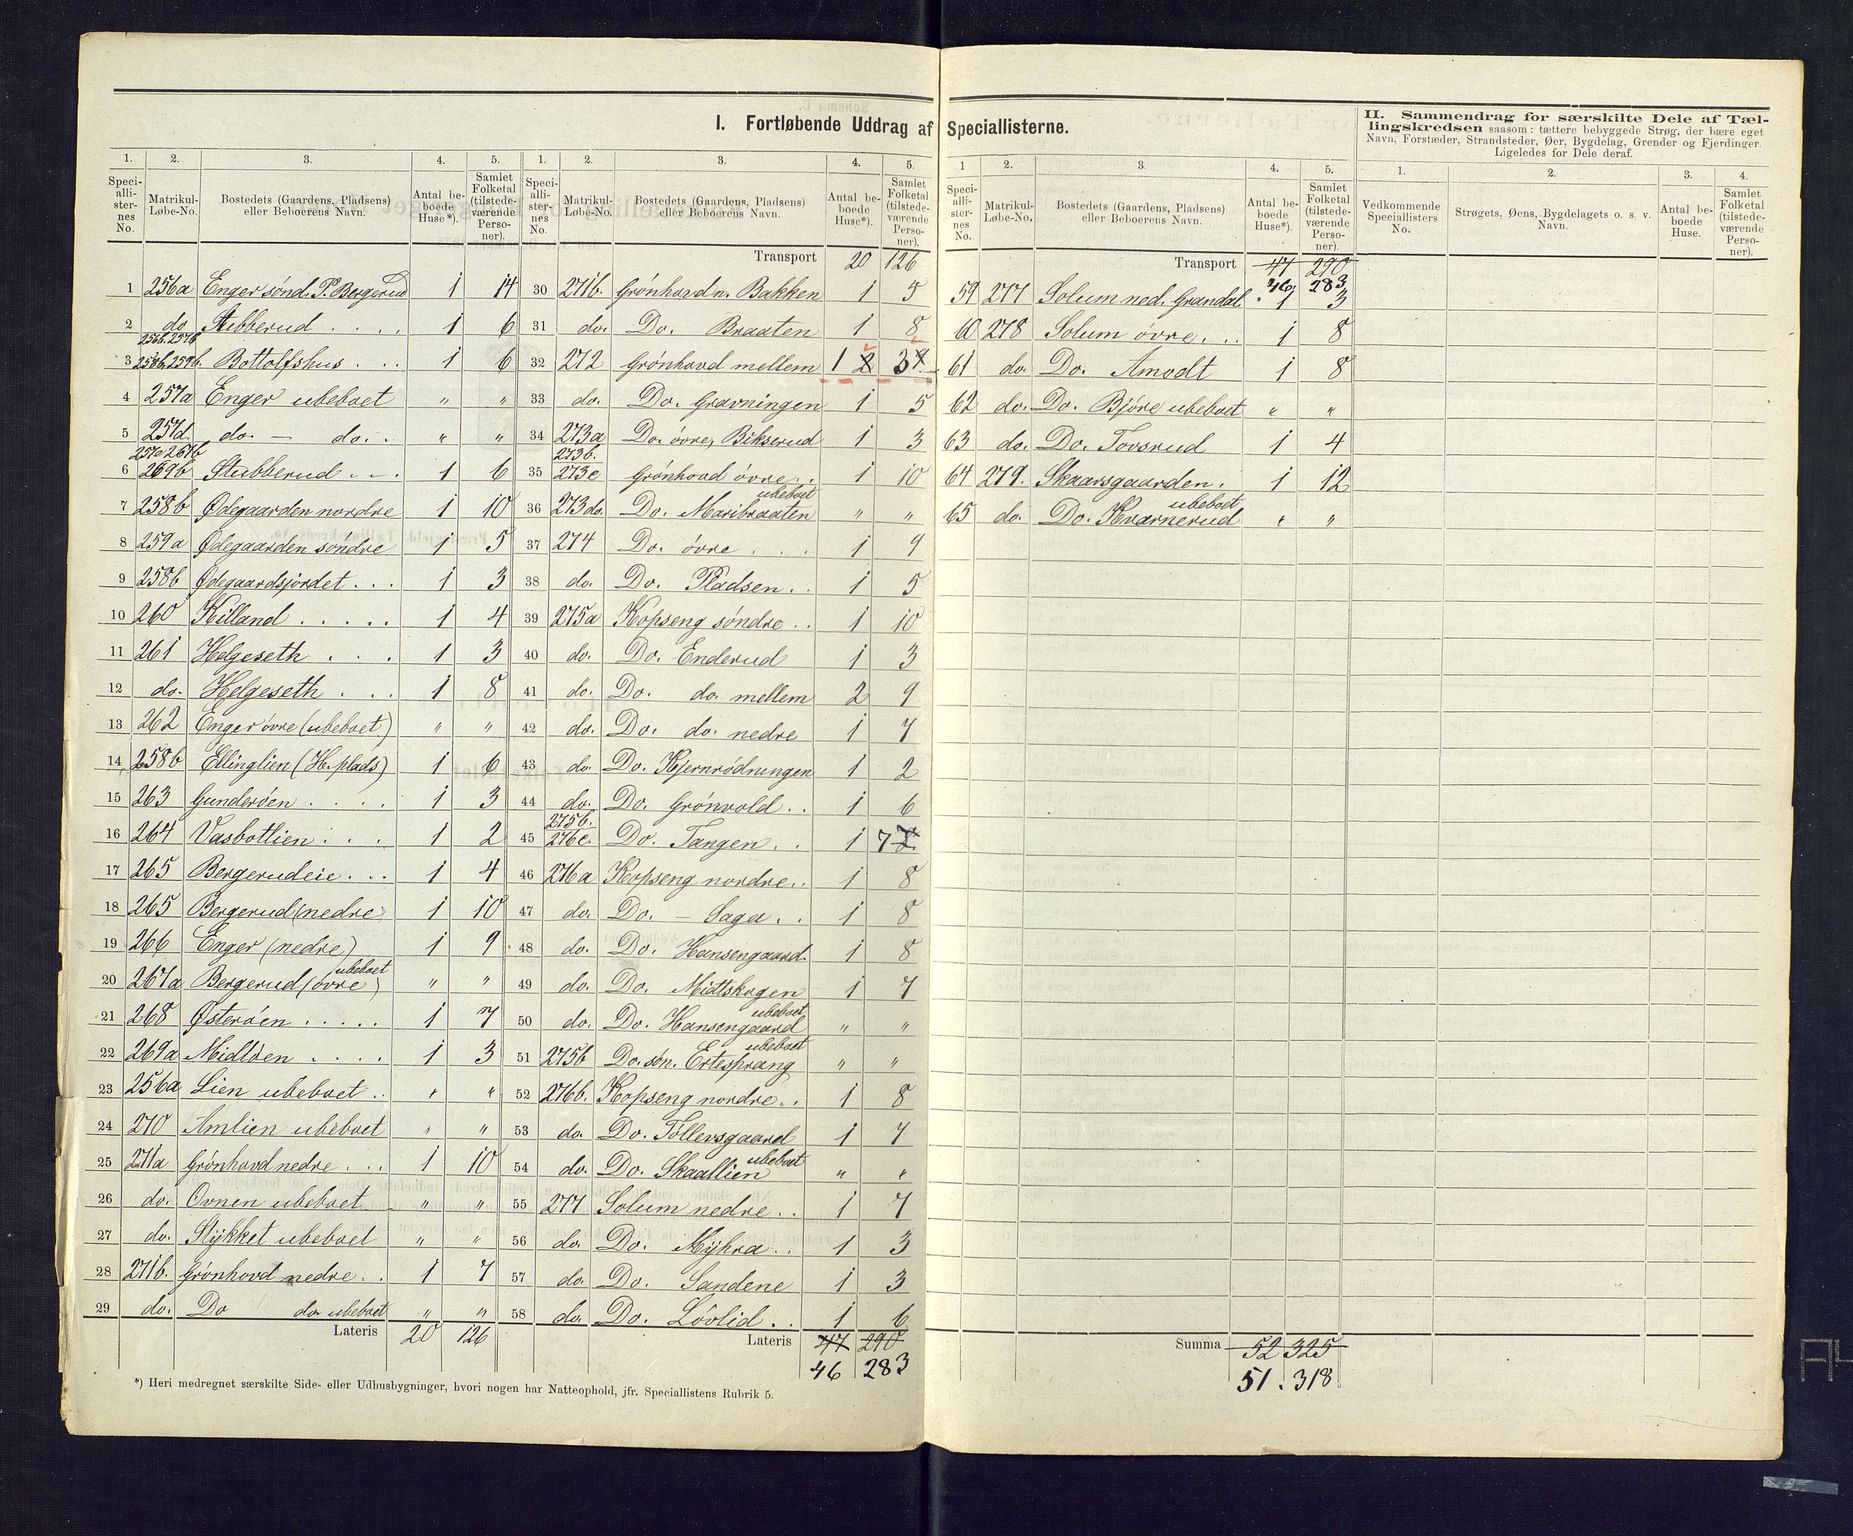 I. Fortløbende Uddrag af Speciallisterne.
1. 2. 3. 4. 5.
Speciallisternes No. Matrikul-Løbe-No. Bostedets (Gaardens, Pladsens) eller Beboerens Navn. Antal beboede Huse*). Samlet Folketal (tilstedeværende Personer).
1 256a Enger sønd. P. Bergerud 1 14
2 do Stubberud . . . . 1 6
256b. 257b
3 258b, 259b. Bottolfshus . . . 1 6
4 257a Enger ubeboet " "
5 257d. do. — do. . " "
257c 267b
6 269b Stubberud . . . 1 6
7 258b Ødegaarden nordre 1 10
8 259a Ødegaarden søndre 1 5
9 258b Ødegaardsjordet . . . 1 3
10 260 Killand . . . . . 1 4
11 261 Helgeseth . . . 1 3
12 do. Helgeseth . . . 1 8
13 262 Enger øvre (ubeboet) " "
14 258b Ellinglien (H. plads) 1 6
15 263 Gunderøen . . . . 1 3
16 264 Vasbotlien . . . 1 2
17 265 Bergerudeie . . . 1 4
18 265 Bergerud (nedre) 1 10
19 266 Enger (nedre) 1 9
20 267a Bergerud (øvre) ubeboet " "
21 268 Østerøen . . . . . 1 7
22 269a Midtøen . . . . 1 3
23 256a Lien ubeboet . . " "
24 270 Amlien ubeboet " "
25 271a Grønhovd nedre . . . 1 10
26 do. Ovnen ubeboet " "
27 do. Stykket ubeboet " "
28 271b. Grønhovd nedre . . 1 7
29 do. Do do. ubeboet " "
Lateris 20 126
*) Heri medregnet særskilte Side- eller Udhusbygninger, hvori nogen har Natteophold, jfr. Speciallistens Rubrik 5.
1. 2. 3. 4. 5.
Speciallisternes No. Matrikul-Løbe-No. Bostedets (Gaardens, Pladsens) eller Beboerens Navn. Antal beboede Huse*). Samlet Folketal (tilstedeværende Personer).
Transport 20 126
30 271b. Grønhovd n. Bakken 1 5
31 do. Do. Braaten 1 8
32 272 Grønhovd mellem 1 2 3
33 do. Do. Gravningen 1 5
34 273a Do. øvre, Bikserud 1 3
273b.
35 273c Grønhovd øvre . . 1 10
36 273do. Do. Maribraaten ubeboet " "
37 274 Do. øvre . . . 1 9
38 do. Do. Pladsen . . 1 5
39 275a Kopseng søndre . . 1 10
40 do. Do. Enderud 1 3
41 do. Do. do. mellem 2 9
42 do. Do. do. nedre 1 7
43 do. Do. Kjernrødningen 1 2
44 do. Do. Grønvold . . 1 6
275b.
45 276c. Do. Tangen . . 1 7
46 276a Kopseng nordre . . 1 8
47 do. Do. — Saga . . 1 8
48 do. Do. Hansengaard. 1 8
49 do. Do. Midtskogen 1 7
50 do. Do. Hansengaard ubeboet " "
51 275b Do. søn. Ertesprang ubeboet " "
52 276b. Kopseng nordre . . 1 8
53 do. Do. Tøllevsgaard 1 7
54 do. Do. Skaallien ubeboet " "
55 277 Solum nedre . . 1 7
56 do. Do. Myhra . . 1 3
57 do. Do. Sandene 1 3
58 do. Do. Løvlid . . 1 6
Lateris 47 290
46 283
1 2. 3. 4. 5.
Speciallisternes No. Matrikul-Løbe-No. Bostedets (Gaardens, Pladsens) eller Beboerens Navn. Antal beboede Huse*). Samlet Folketal (tilstedeværende Personer).
Transport 47 290
46 283
59 277 Solum ned. Grandal. 1 3
60 278 Solum øvre . . . 1 8
61 do. Do. Amodt 1 8
62 do. Do. Bjøre ubeboet " "
63 do. Do. Tovsrud 1 4
64 279. Skaarsgaarden . 1 12
65 do. Do. Kværnerud ubeboet " "
Summa 52 325
51. 318
II. Sammendrag for særskilte Dele af Tællingskredsen saasom: tættere bebyggede Strøg, der bære eget Navn, Forstæder, Strandsteder, Øer, Bygdelag, Grender og Fjerdinger. Ligeledes for Dele deraf.
1. 2. 3. 4.
Vedkommende Speciallisters No. Strøgets, Øens, Bygdelagets o. s. v. Navn. Antal beboede Huse. Samlet Folketal (tilstedeværende Personer).